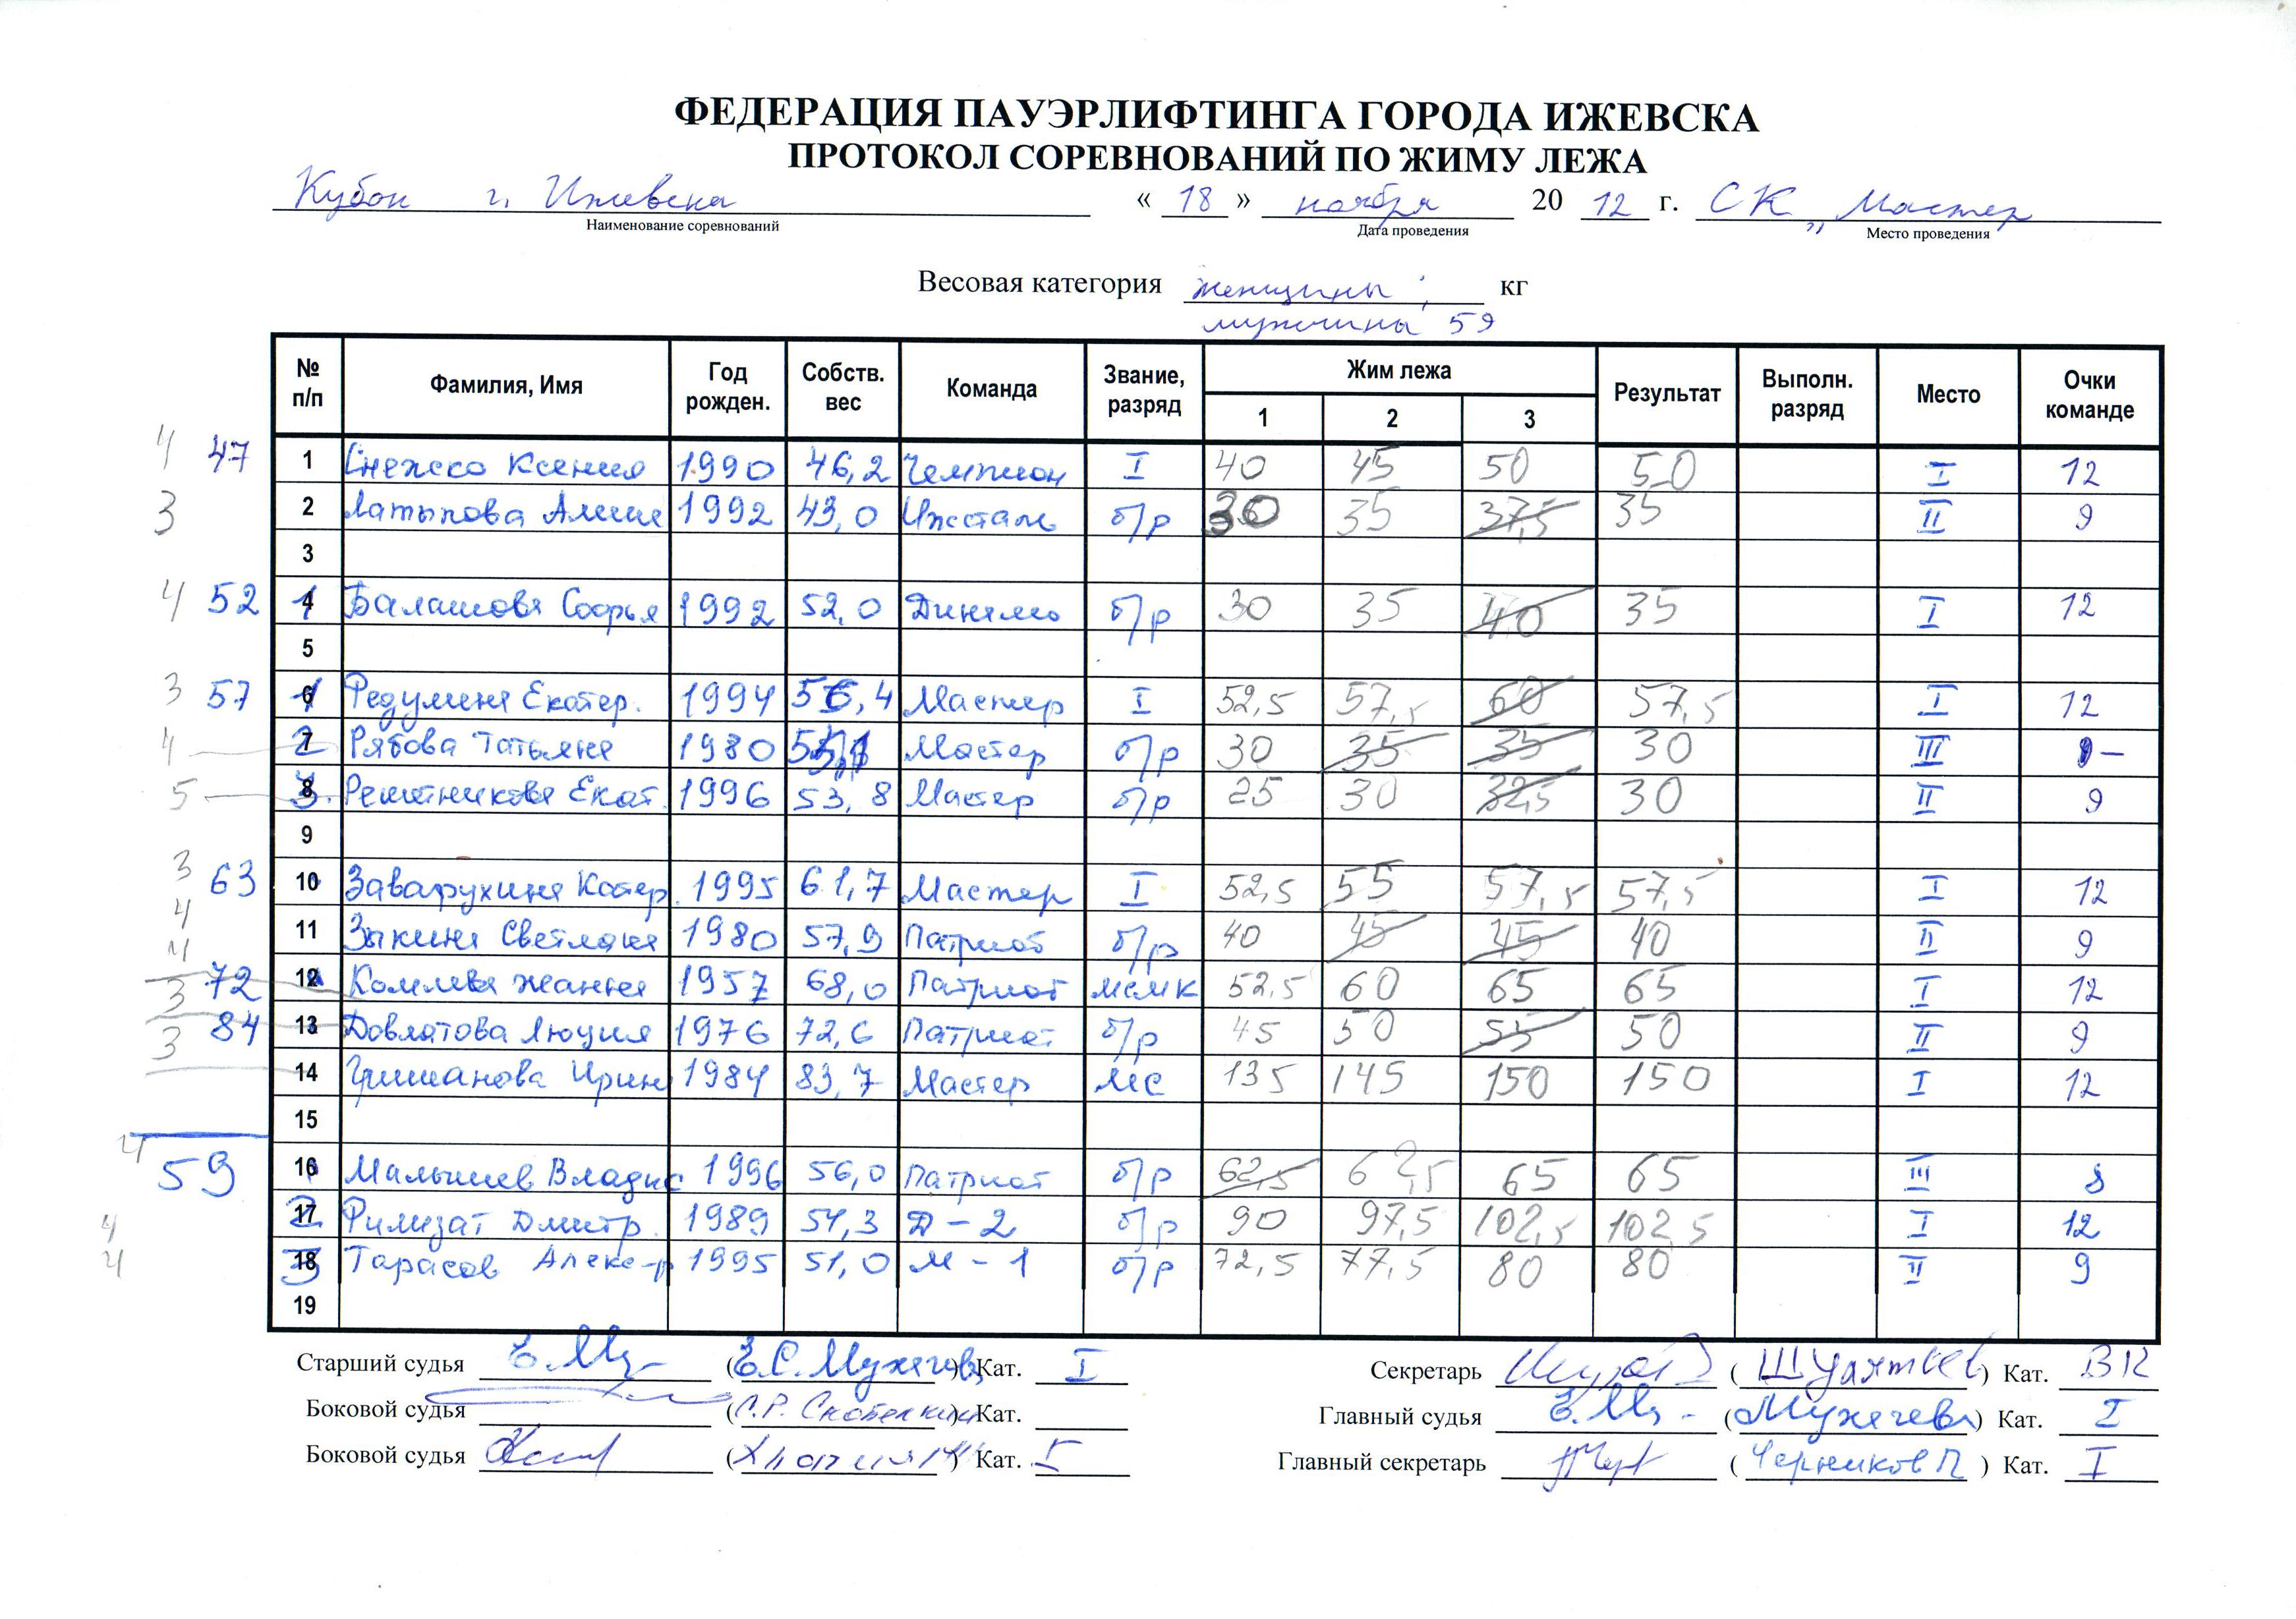 ФЕДЕРАЦИЯ ПАУЭРЛИФТИНГА ГОРОДА ИЖЕВСКА
ПРОТОКОЛ СОРЕВНОВАНИЙ ПО ЖИМУ ЛЕЖА
Кубок г. Ижевска « 18 » ноября 20 12 г. СК „ Мастер
Наименование соревнований Дата проведения Место проведения
Весовая категория женщины ; кг
мужчины 59
№ п/п Фамилия, Имя Год рожден. Собств. вес Команда Звание, разряд Жим лежа Результат Выполн. разряд Место Очки команде
1 2 3
4 47 1 Ксения 1990 46,2 Чемпион I 40 45 50 50 I 12
3 2 Латыпова 1992 43,0 Ижсталь б/р 30 35 37,5 35 II 9
3
4 52 4 Балашова Софья 1992 52,0 Динамо б/р 30 35 40 35 I 12
5
3 57 6 Екатер. 1994 56,4 Мастер I 52,5 57,5 60 57,5 I 12
4 7 Рябова Татьяна 1980 Мастер б/р 30 35 35 30 III –
5 8 Решетникова Екат. 1996 53,8 Мастер б/р 25 30 32,5 30 II 9
9
3 63 10 Заварухина Катер. 1995 61,7 Мастер I 52,5 55 57,5 57,5 I 12
4 11 Зыкина Светлана 1980 57,9 Патриот б/р 40 45 45 40 II 9
4 72 12 Жанна 1957 68,0 Патриот мсмк 52,5 60 65 65 I 12
3 84 13 Довлатова Люция 1976 72,6 Патриот б/р 45 50 55 50 II 9
3 14 Гришанова Ирин 1984 83,7 Мастер МС 135 145 150 150 I 12
15
4 59 16 Малышев Владис 1996 56,0 Патриот б/р 62,5 62,5 65 65 III 8
17 Дмитр. 1989 54,3 Д-2 б/р 90 97,5 102,5 102,5 I 12
4 18 Тарасов Алекс-р 1995 51,0 М-1 б/р 72,5 77,5 80 80 II 9
4
19
Старший судья (Е.С. ) Кат. I Секретарь ( ) Кат. ВК
Боковой судья (С.Р. ) Кат. Главный судья ( ) Кат. I
Боковой судья ( ) Кат. I Главный секретарь (Черников П) Кат. I